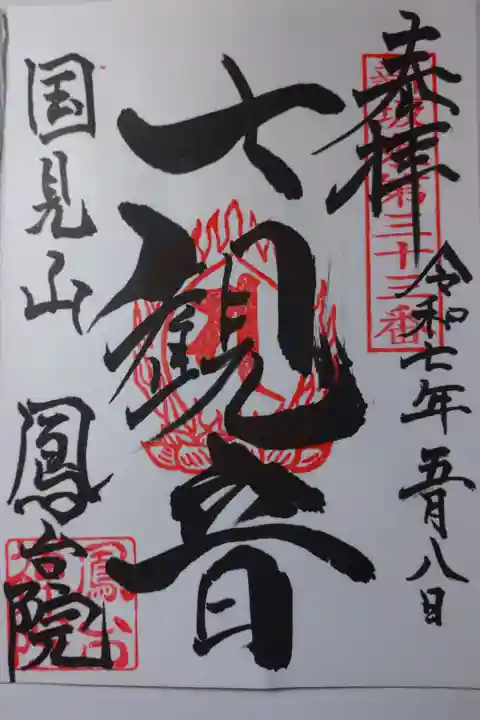 奉拝
第三十三番
令和七年五月八日
七観音
国見山 鳳台院